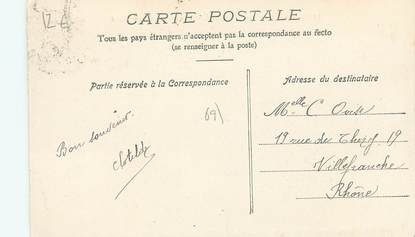 12 €
CARTE POSTALE
Tous les pays étrangers n'acceptent pas la correspondance au recto
(se renseigner à la poste)
Partie réservée à la Correspondance
Adresse du destinataire
69)
Bon souvenir
Clotilde
Melle C
19 rue de 19
Villefranche
Rhône